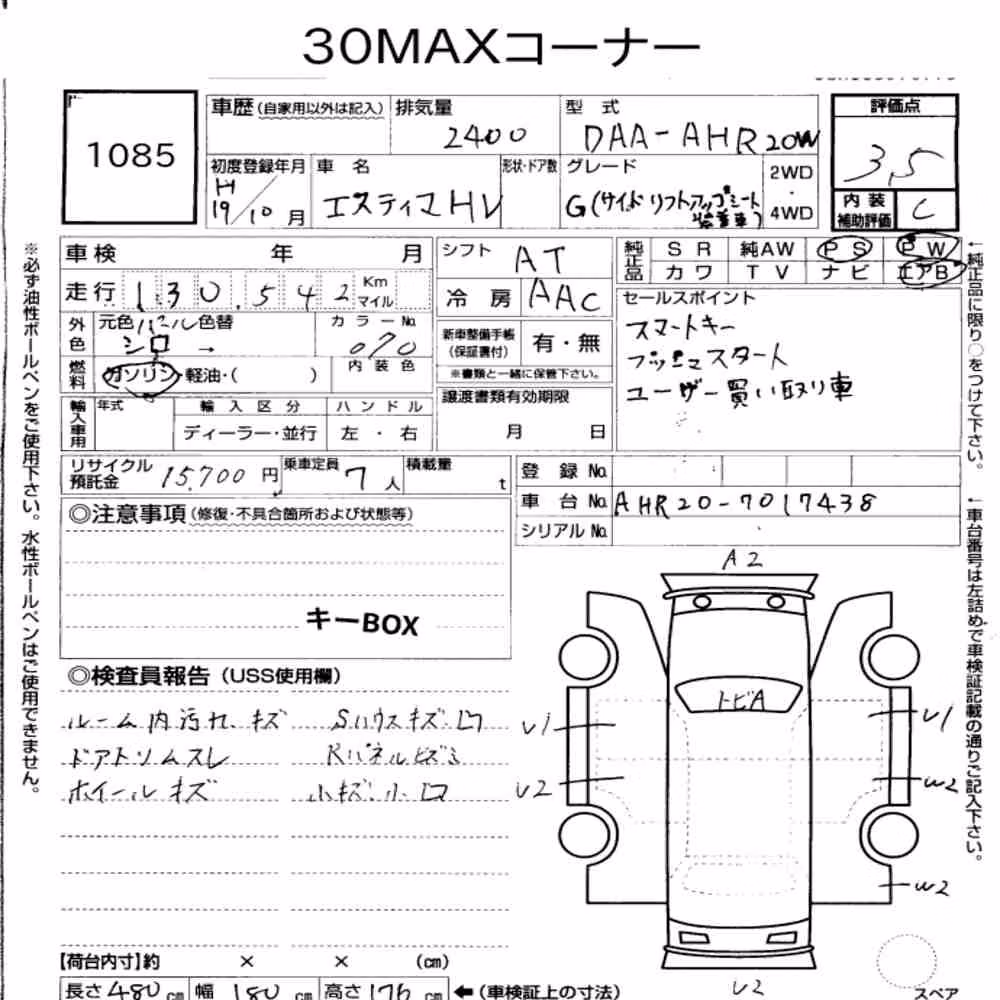 30MAXコーナー
1085
車歴 (自家用以外は記入)
排気量
2400
型式
DAA-AHR20W
評価点
3.5
初度登録年月
H
19/10月
車名
エスティマHV
形状・ドア数
グレード
G(サイドリフトアップシート
装着車)
2WD
・
4WD
内装
補助評価
C
車検 年 月
シフト
AT
純正品
SR 純AW PS PW
カワ TV ナビ エアB
走行 130,542 Km
マイル
冷房 AAC
セールスポイント
スマートキー
プッシュスタート
ユーザー買い取り車
外色
元色 パール 色替
シロ →
カラーNo.
070
新車整備手帳
(保証書付)
有・無
※書類と一緒に保管下さい。
燃料
ガソリン・軽油・( )
内装色
譲渡書類有効期限
月 日
輸入車用
年式
輸入区分
ハンドル
ディーラー・並行
左・右
リサイクル
預託金
15,700円
乗車定員
7人
積載量
t
登録No.
車台No. AHR20-7017438
シリアルNo.
◎注意事項 (修復・不具合箇所および状態等)
キーBOX
◎検査員報告 (USS使用欄)
ルーム内汚れ、キズ Sハウスキズ.凹
ドアトリムスレ
ホイールキズ 小キズ.小凹
A2
トビA
U1
U1
U2
W2
W2
U2
スペア
【荷台内寸】約 × × (cm)
長さ480cm 幅180cm 高さ176cm ←(車検証上の寸法)
※必ず油性ボールペンをご使用下さい。水性ボールペンはご使用できません。
←純正品に限り○をつけて下さい。
←車台番号は左詰めで車検証記載の通りご記入下さい。